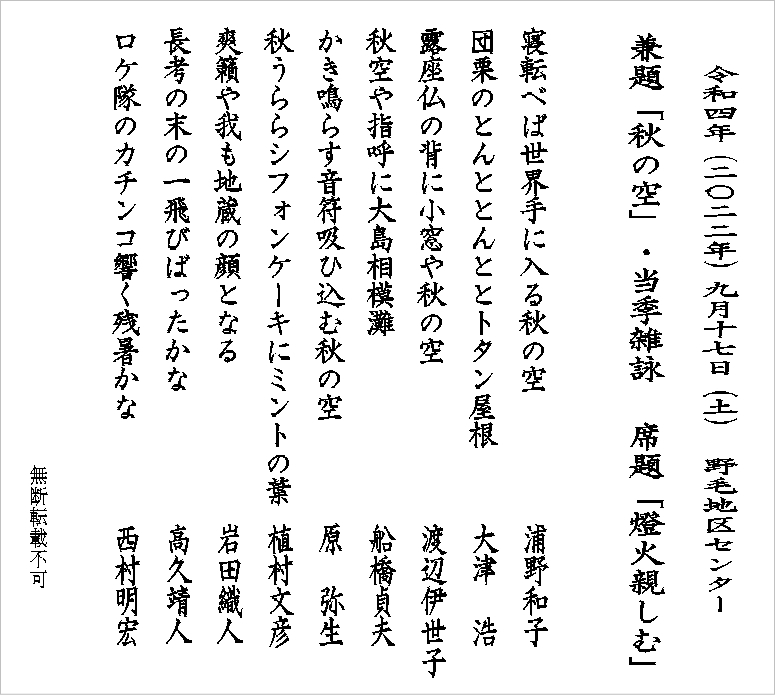 令和四年（二〇二二年）九月十七日（土）　野毛地区センター
兼題「秋の空」・当季雑詠　席題「燈火親しむ」
寝転べば世界手に入る秋の空　浦野和子
団栗のとんととんととトタン屋根　大津　浩
露座仏の背に小窓や秋の空　渡辺伊世子
秋空や指呼に大島相模灘　船橋貞夫
かき鳴らす音符吸ひ込む秋の空　原　弥生
秋うららシフォンケーキにミントの葉　植村文彦
爽籟や我も地蔵の顔となる　岩田織人
長考の末の一飛びばったかな　高久靖人
ロケ隊のカチンコ響く残暑かな　西村明宏
無断転載不可